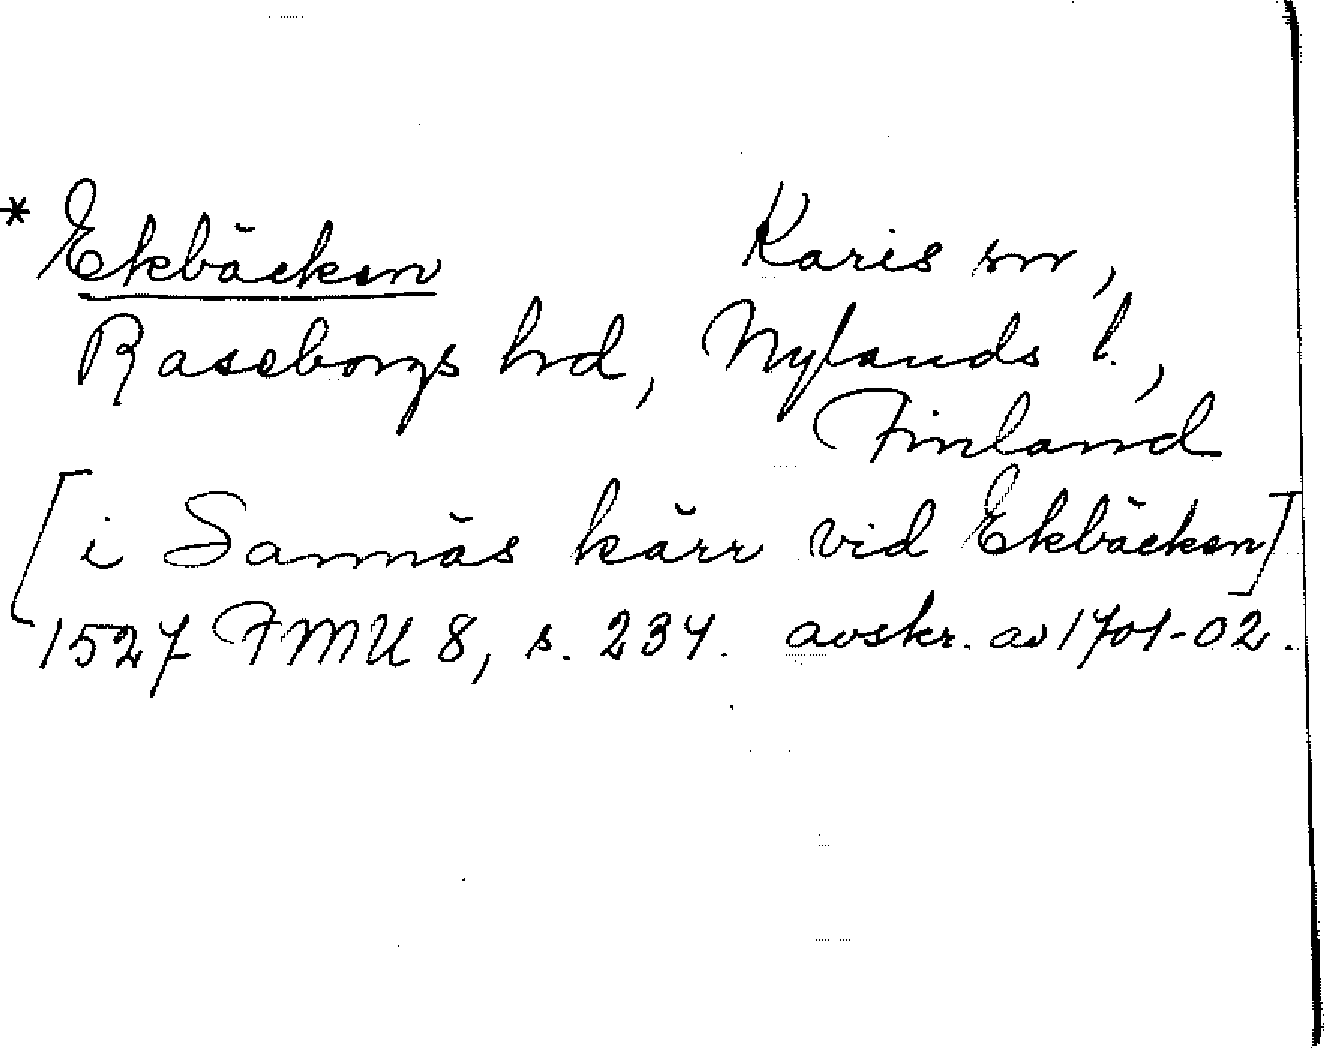 * Ekbäcken Karis sn,
Raseborgs hrd, Nylands l.,
Finland
[i Sannäs kärr vid Ekbäcken]
1527 FMU 8, s. 234. avskr. av 1701-02.